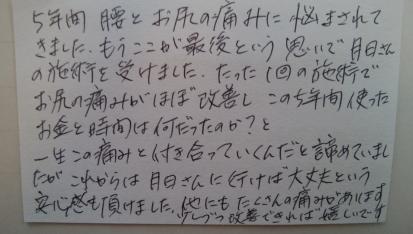 5年間 腰とお尻の痛みに悩まされて
きました。もうここが最後という思いで月日さん
の施術を受けました。たった1回の施術で
お尻の痛みがほぼ改善し この5年間使った
お金と時間は何だったのか?と
一生この痛みと付き合っていくんだと諦めていまし
たが これからは月日さんに行けば大丈夫という
安心感も頂けました。他にもたくさんの痛みがあります
少しづつ改善できれば嬉しいです